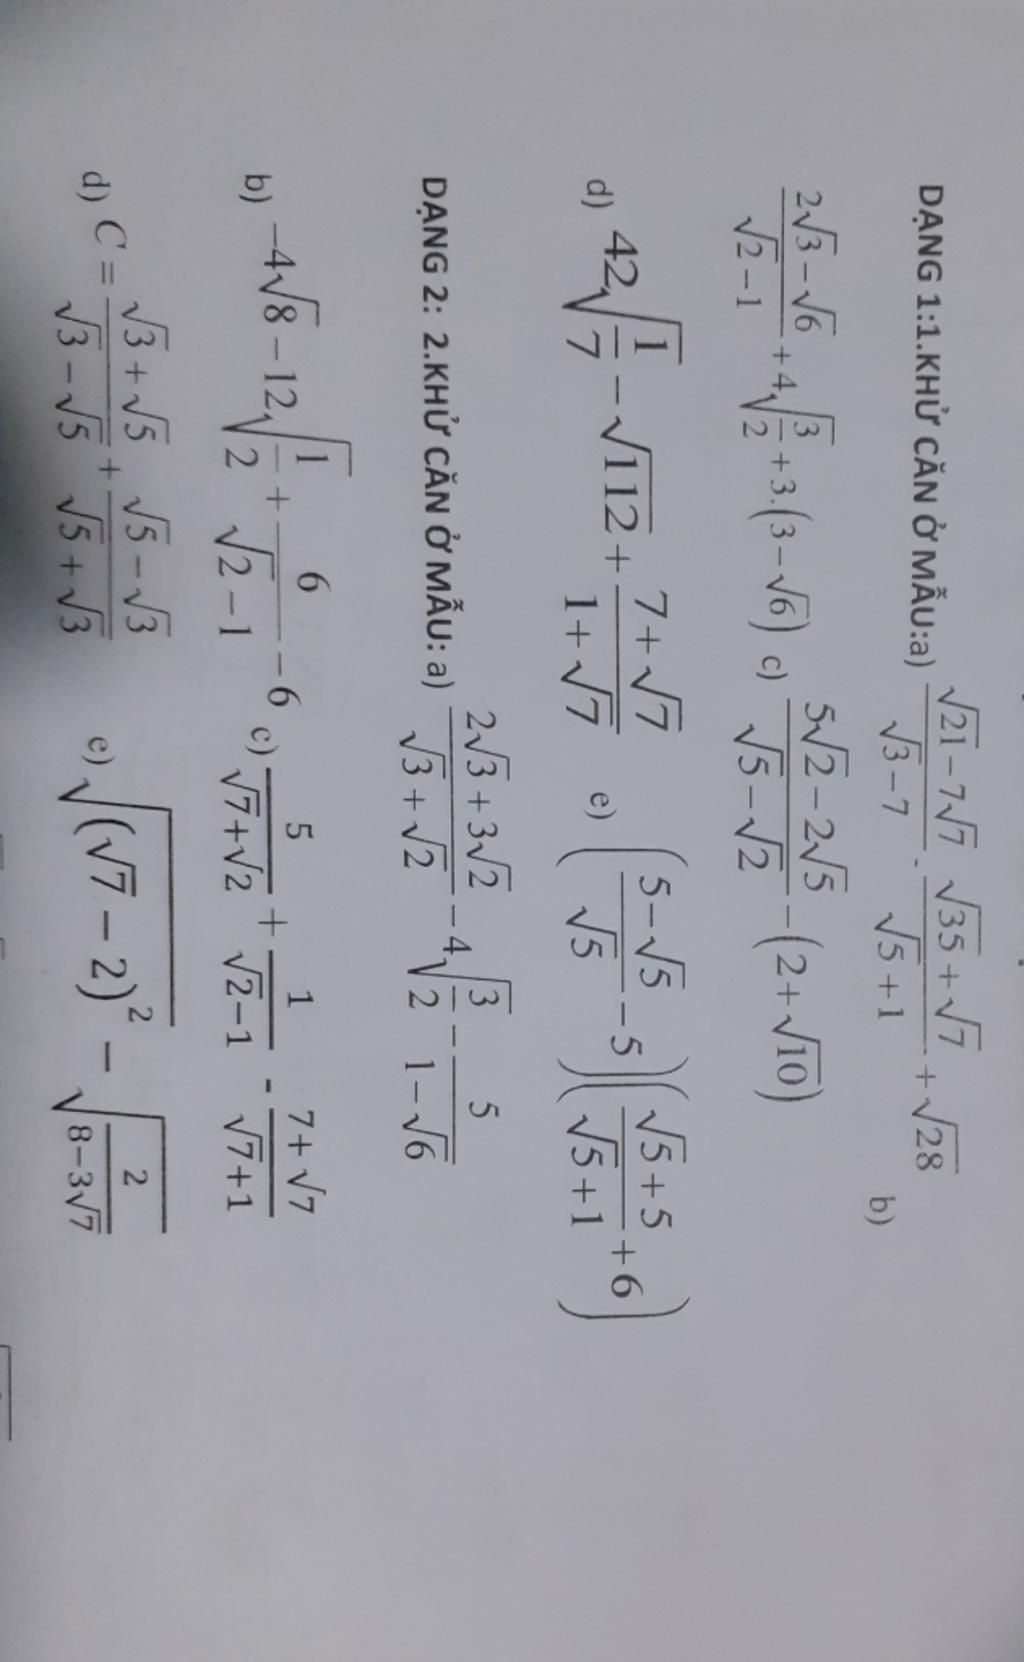 DẠNG 1:1.KHỬ CĂN Ở MẪU:a) \frac{\sqrt{21}-7\sqrt{7}}{\sqrt{3}-7} - \frac{\sqrt{35}+\sqrt{7}}{\sqrt{5}+1} + \sqrt{28} b)
\frac{2\sqrt{3}-\sqrt{6}}{\sqrt{2}-1} + 4\sqrt{\frac{3}{2}} + 3.(3-\sqrt{6}) c) \frac{5\sqrt{2}-2\sqrt{5}}{\sqrt{5}-\sqrt{2}} - (2+\sqrt{10})
d) 42\sqrt{\frac{1}{7}} - \sqrt{112} + \frac{7+\sqrt{7}}{1+\sqrt{7}} e) \left(\frac{5-\sqrt{5}}{\sqrt{5}}-5\right)\left(\frac{\sqrt{5}+5}{\sqrt{5}+1}+6\right)
DẠNG 2: 2.KHỬ CĂN Ở MẪU: a) \frac{2\sqrt{3}+3\sqrt{2}}{\sqrt{3}+\sqrt{2}} - 4\sqrt{\frac{3}{2}} - \frac{5}{1-\sqrt{6}}
b) -4\sqrt{8} - 12\sqrt{\frac{1}{2}} + \frac{6}{\sqrt{2}-1} - 6 c) \frac{5}{\sqrt{7}+\sqrt{2}} + \frac{1}{\sqrt{2}-1} - \frac{7+\sqrt{7}}{\sqrt{7}+1}
d) C = \frac{\sqrt{3}+\sqrt{5}}{\sqrt{3}-\sqrt{5}} + \frac{\sqrt{5}-\sqrt{3}}{\sqrt{5}+\sqrt{3}} e) \sqrt{(\sqrt{7}-2)^2} - \sqrt{\frac{2}{8-3\sqrt{7}}}